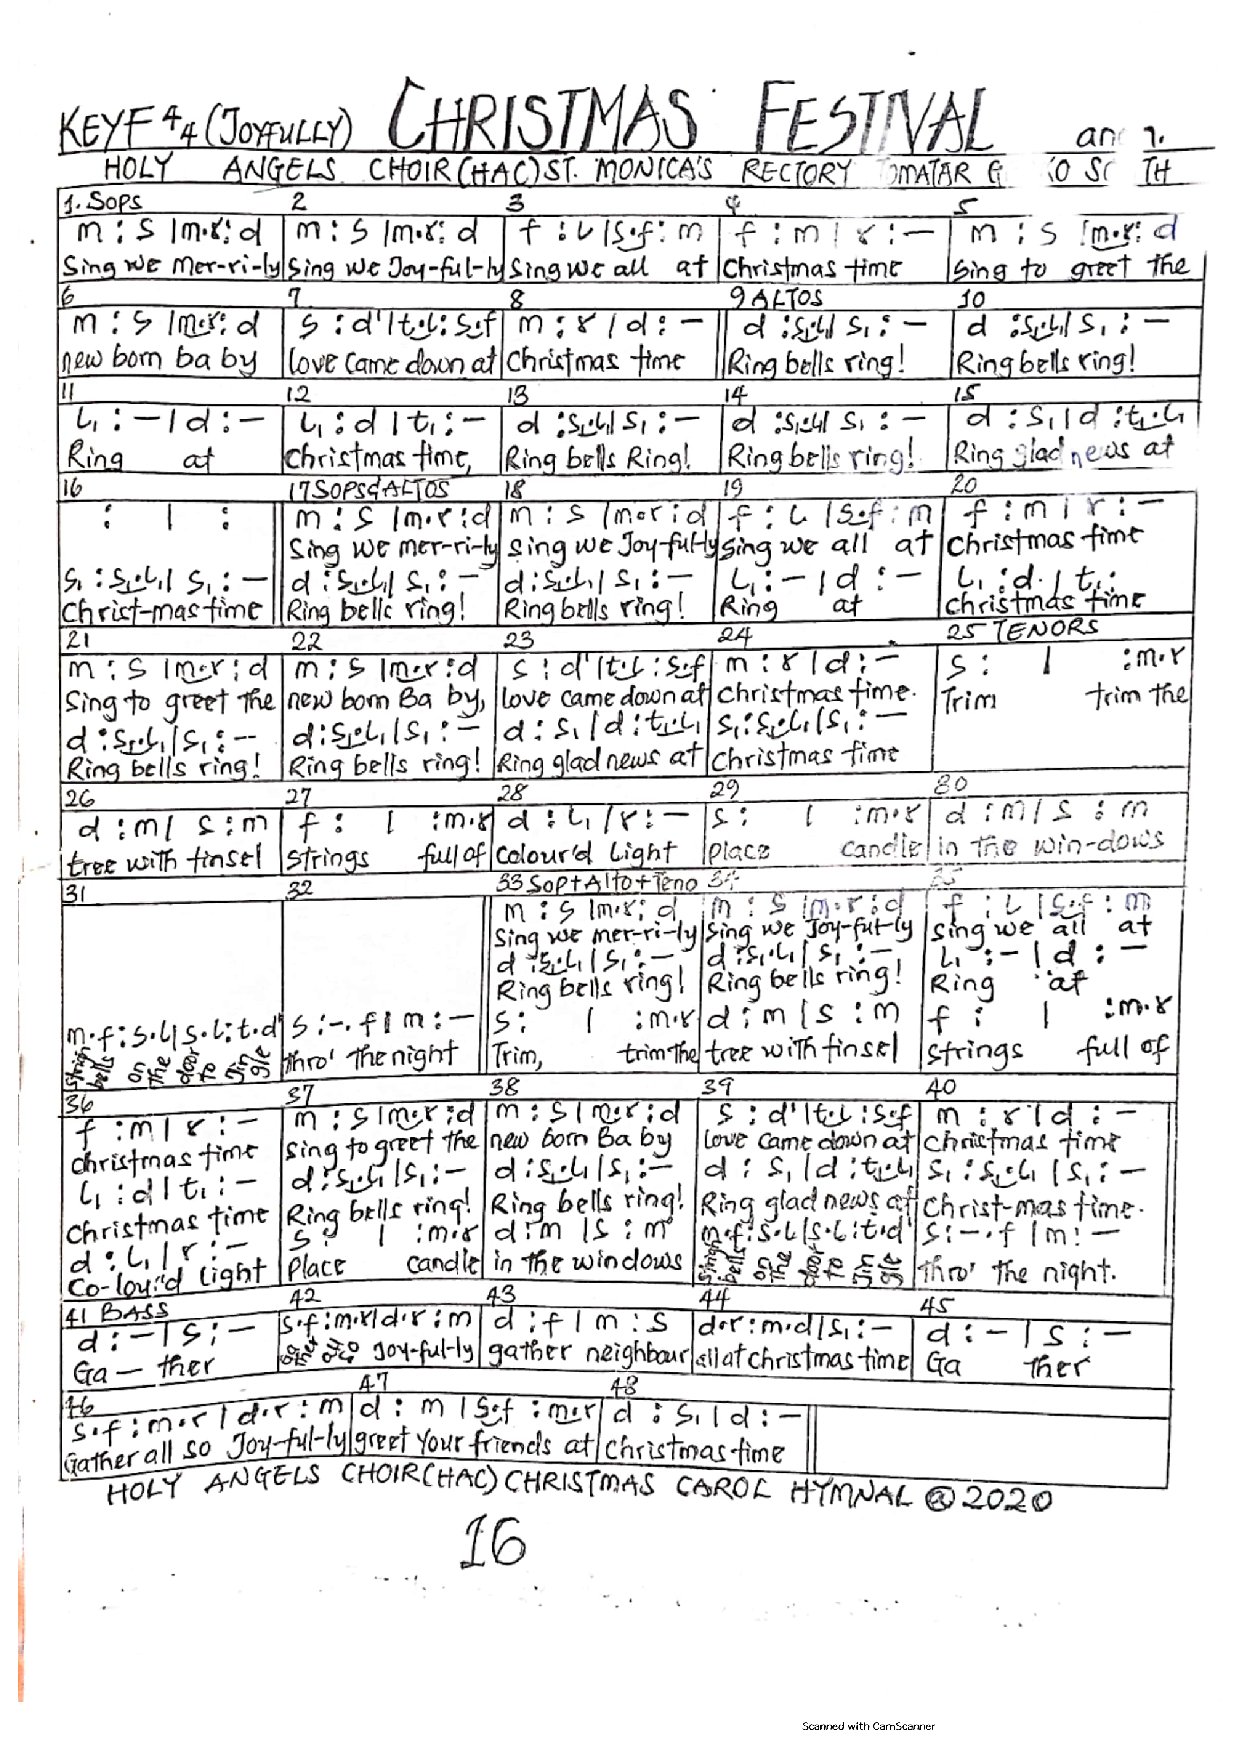 KEYF 4/4 (JOYFULLY) CHRISTMAS FESTIVAL
HOLY ANGELS CHOIR(HAC) ST. MONICA'S RECTORY
1. Sops 2 3 4 5
m : s |m.r: d m : s |m.r: d f : l |s.f: m f : m | r : — m : s |m.r: d
Sing we mer-ri-ly Sing we Joy-ful-ly Sing we all at Christmas time Sing to greet the
6 7 8 9 ALTOS 10
m : s |m.r: d s : d'|t.l: s.f m : r | d : — d :s₁.l₁| s₁ : — d :s₁.l₁| s₁ : —
new born ba by love came down at Christmas time Ring bells ring! Ring bells ring!
11 12 13 14 15
l₁ : — | d : — l₁ : d | t₁ : — d :s₁.l₁| s₁ : — d :s₁.l₁| s₁ : — d : s₁| d :t₁.l₁
Ring at Christmas time, Ring bells Ring! Ring bells ring! Ring glad news at
16 17 SOPS&ALTOS 18 19 20
: | : m : s |m.r : d m : s |m.r : d f : l |s.f : m f : m | r : —
Sing we mer-ri-ly Sing we Joy-ful-ly Sing we all at Christmas time
s₁ :s₁.l₁| s₁ : — d :s₁.l₁| s₁ : — d :s₁.l₁| s₁ : — l₁ : — | d : — l₁ : d. | t₁ :
Christ-mas time Ring bells ring! Ring bells ring! Ring at christmas time
21 22 23 24 25 TENORS
m : s |m.r : d m : s |m.r : d s : d'|t.l : s.f m : r | d : — s : | :m.r
Sing to greet the new born Ba by, love came down at Christmas time. Trim trim the
d :s₁.l₁|s₁ : — d :s₁.l₁|s₁ : — d : s₁ | d :t₁.l₁ s₁:s₁.l₁|s₁: —
Ring bells ring! Ring bells ring! Ring glad news at Christmas time
26 27 28 29 30
d : m| s : m f : | :m.r d : l₁ | r : — s : | :m.r d : m | s : m
tree with tinsel strings full of colour'd light place candle in the win-dows
31 32 33 Sop+Alto+Teno 34 35
m : s |m.r: d m : s |m.r : d f : l |s.f : m
Sing we mer-ri-ly Sing we Joy-ful-ly Sing we all at
d :s₁.l₁|s₁: — d :s₁.l₁|s₁ : — l₁ : — | d : —
Ring bells ring! Ring bells ring! Ring at
m.f : s.l| s.l : t.d' s : —. f | m : — s : | :m.r d : m | s : m f : | :m.r
bells on the door to jin gle thro' the night Trim, trim the tree with tinsel strings full of
36 37 38 39 40
f : m | r : — m : s |m.r : d m : s |m.r : d s : d'|t.l : s.f m : r | d : —
christmas time Sing to greet the new born Ba by love came down at christmas time
l₁ : d | t₁ : — d :s₁.l₁|s₁: — d :s₁.l₁|s₁: — d : s₁ | d :t₁.l₁ s₁ : s₁.l₁ | s₁ : —
christmas time Ring bells ring! Ring bells ring! Ring glad news at Christ-mas time.
d : l₁ | r : — s : | :m.r d : m | s : m m.f : s.l|s.l : t.d' s : —. f | m : —
Co-lour'd light place candle in the windows bells on the door to jin gle thro' the night.
41 BASS 42 43 44 45
d : — | s : — s.f : m.r|d.r : m d : f | m : s d.r : m.d|s₁ : — d : — | s : —
Ga — ther Joy-ful-ly gather neighbour all at christmas time Ga ther
46 47 48
s.f : m.r | d.r : m d : m | s.f : m.r d : s₁ | d : —
Gather all so Joy-ful-ly greet your friends at christmas time
HOLY ANGELS CHOIR(HAC) CHRISTMAS CAROL HYMNAL @2020
16
Scanned with CamScanner